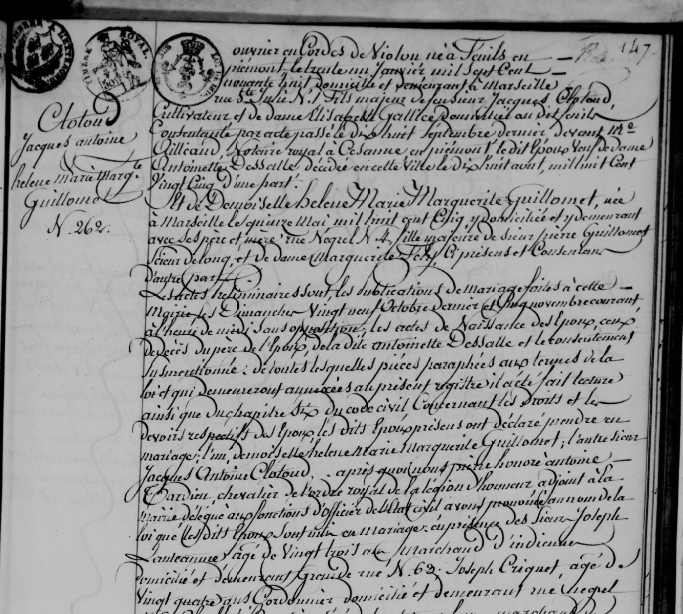 147.
TIMBRE ROYAL
Clotoud
Jacques antoine
&
helene Marie Marg.te
Guillomet
N. 262.
ouvrier en Cordes de Violon né à Fenils en
piémont le trente un Janvier mil sept Cent
nonante huit, domicilié et demeurant à Marseille
rue Ste Julie N. 1 fils majeur de feu sieur Jacques Clotoud,
Cultivateur, et de dame Elisabeth Gallice domiciliée au dit fenils
Consentante par acte passé le Dix huit Septembre dernier devant Me
Notaire royal à Cesanne en piémont, le dit Epoux Veuf de dame
Antoinette Dessalle décédée en cette Ville le Dix huit aout, mil huit Cent
Vingt Cinq d'une part:
Et de Demoiselle helene Marie Marguerite Guillomet, née
à Marseille le quinze Mai mil huit cent Cinq y domiciliée et y demeurant
avec ses père et mère rue N. 4, fille majeure de sieur pierre Guillomet
Scieur de long, et de dame Marguerite ci présens et Consentans
d'autre part.
Les actes préliminaires sont, les publications de Mariage faites à cette
Mairie les Dimanches Vingt neuf Octobre dernier et Cinq novembre courant
à l'heure de midi sans opposition, les actes de Naissance des Epoux, ceux
de décès du père de l'Epoux, de la dite antoinette Dessalle et le consentement
susmentionné: de toutes lesquelles pièces paraphées aux termes de la
loi et qui demeureront annexées au présent registre il a été fait lecture
ainsi que du chapitre Six du code civil Concernant les Droits et les
devoirs respectifs des Epoux, les dits Epoux présens ont déclaré prendre en
mariage, l'un, demoiselle helene Marie Marguerite Guillomet; l'autre sieur
Jacques Antoine Clotoud. après quoi nous pierre honoré antoine
Tardieu, chevalier de l'ordre royal de la légion d'honneur adjoint à la
Mairie délégué aux fonctions d'officier de l'Etat civil avons prononcé au nom de la
loi que les dits Epoux sont unis en mariage, en présence des Sieurs Joseph
agé de Vingt trois ans Marchand d'indienne
domicilié et demeurant Grande rue N. 62. Joseph Criquet, agé de
Vingt quatre ans Cordonnier domicilié et demeurant rue
marchand